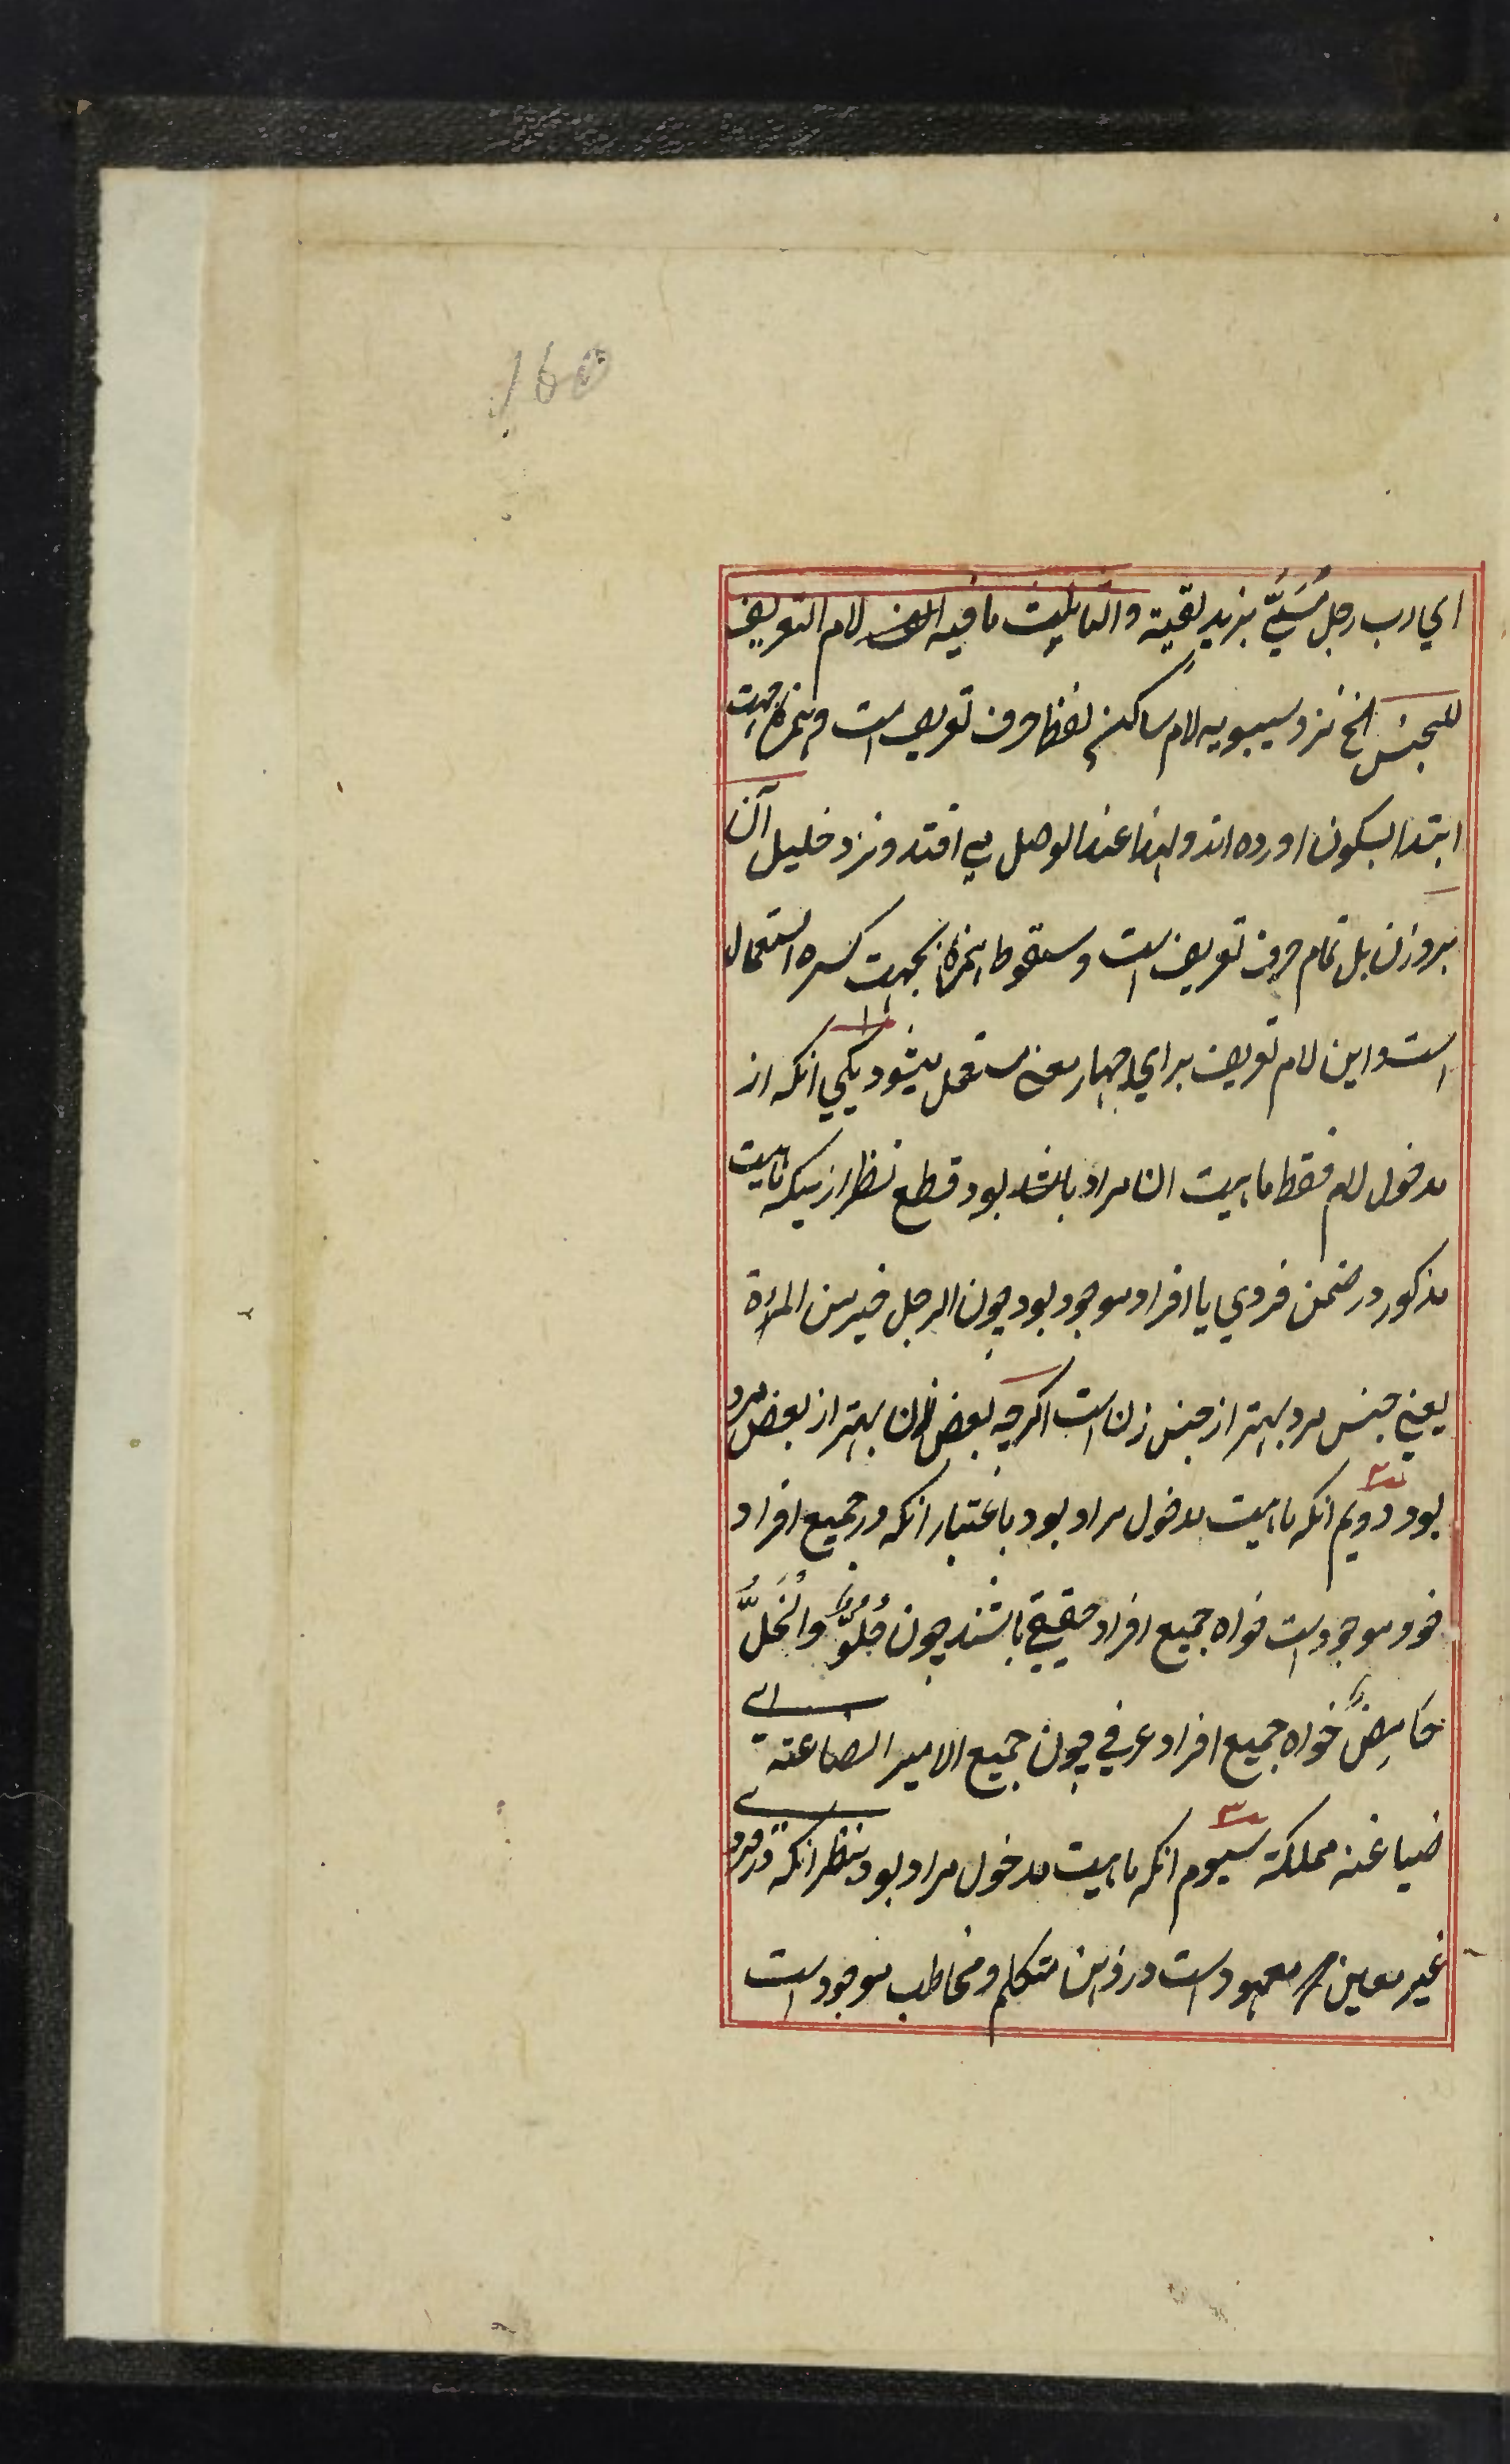 160
اي رب رجل مُسَمَّيً بزيد لقيته والثالث ما فيه الف لام التعريف
للجنس الخ نزد سيبويه لام ساكن لفظا حرف تعريف است و همزه بجهت
ابتدا بسكون اورده اند و لهذا عند الوصل مي افتد و نزد خليل آن
بروزن بل تمام حرف تعريف است و سقوط همزه بجهت كسره استعمال
است و اين لام تعريف براي چهار معني مستعمل ميشود يكي انكه از
مدخول لام فقط ماهيت انا مراد باشد بود قطع نظر ازينكه ماهيت
مذكور در ضمن فردي يا افراد موجود بود چون الرجل خير من المرأة
يعني جنس مرد بهتر از جنس زن است اكرچه بعض زن بهتر از بعض مرد
بود دويم انكه ماهيت مدخول مراد بود باعتبار انكه در جميع افراد
خود موجود است خواه جميع افراد حقيقي باشند چون حُلُوٌّ وَالْخَلُّ
حَامِضٌ خواه جميع افراد عرفي چون جميع الامير الصاغته اي
صياغته مملكته سيوم انكه ماهيت مدخول مراد بود بنظر انكه در فرد
غير معين معهود است در ذهن متكلم و مخاطب موجود است